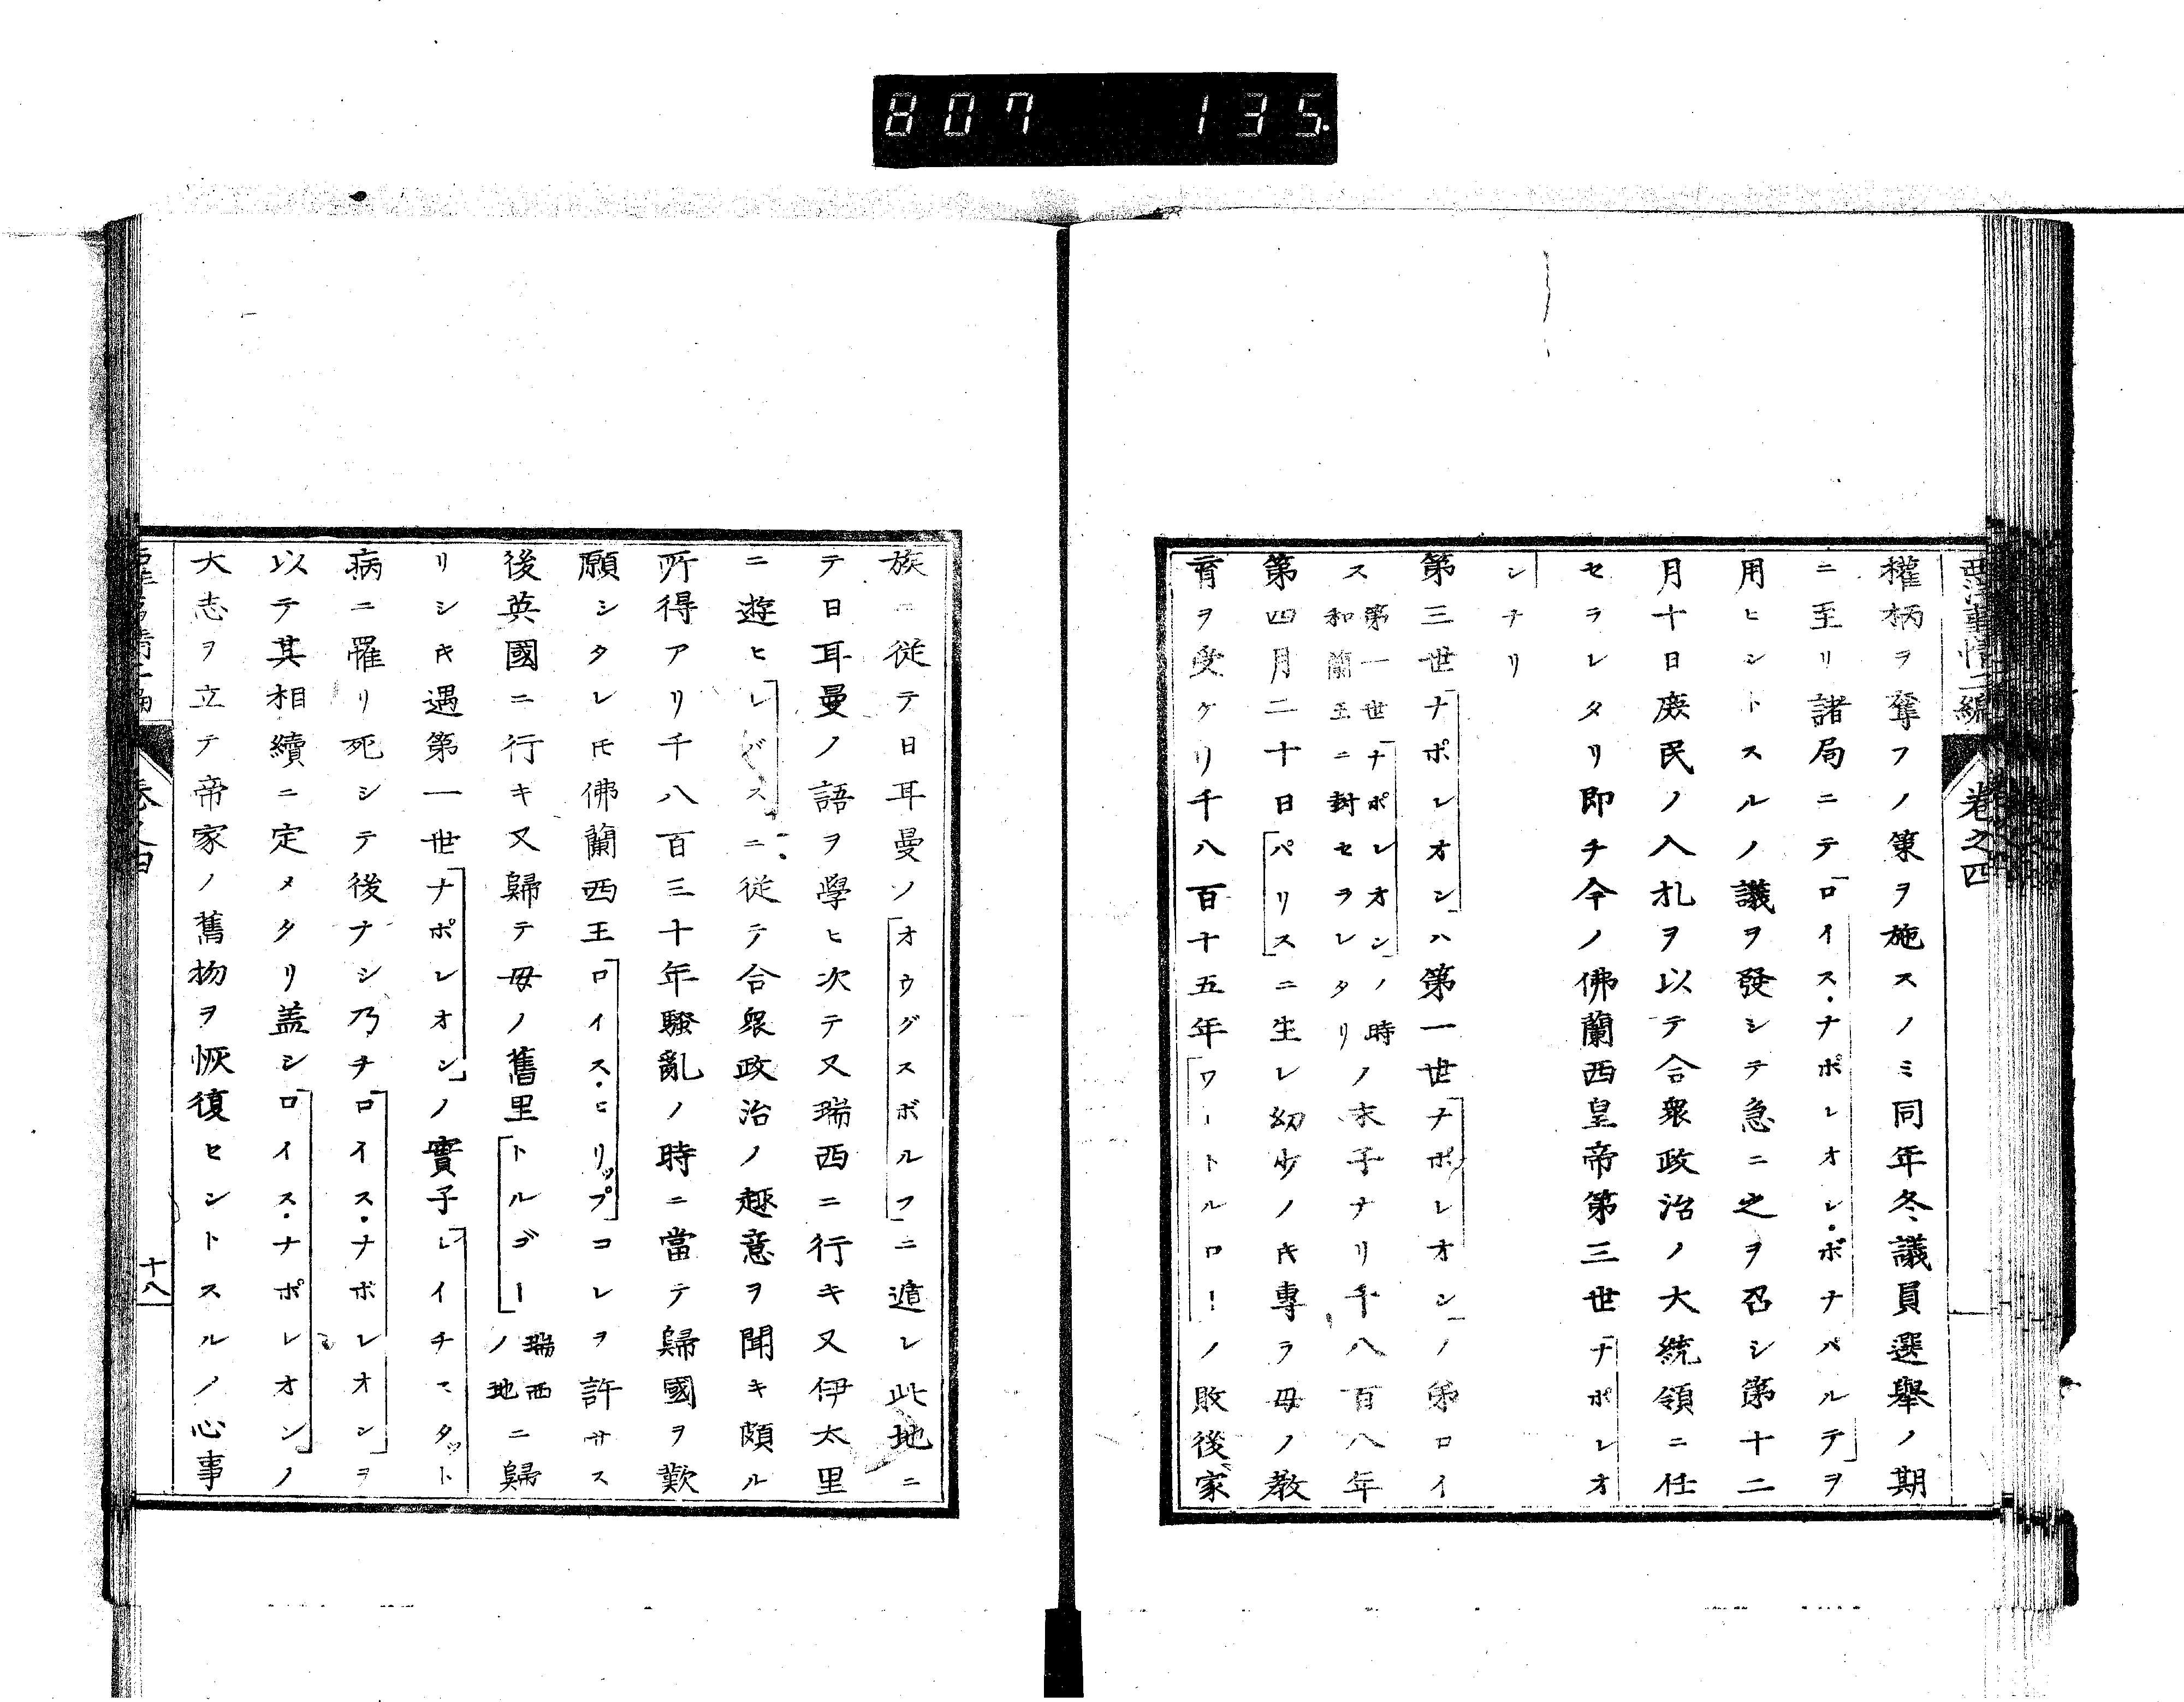 807 135
西洋事情二編 卷之四
權柄ヲ奪フノ策ヲ施スノミ同年冬議員選舉ノ期
ニ至リ諸局ニテ「ロイス・ナポレオン・ボナパルテ」ヲ
用ヒントスルノ議ヲ發シテ急ニ之ヲ召シ第十二
月十日庶民ノ入札ヲ以テ合衆政治ノ大統領ニ任
セラレタリ即チ今ノ佛蘭西皇帝第三世「ナポレオ
ン」ナリ
第三世「ナポレオン」ハ第一世「ナポレオン」ノ弟ロイ
ス 第一世「ナポレオン」ノ時 和蘭王ニ封セラレタリ ノ末子ナリ千八百八年
第四月二十日「パリス」ニ生レ幼少ノキ專ラ母ノ教
育ヲ受ケリ千八百十五年「ワートルロー」ノ敗後家
族ニ從テ日耳曼ノ「オウグスボルフ」ニ遁レ此地ニ
テ日耳曼ノ語ヲ學ヒ次テ又瑞西ニ行キ又伊太里
ニ遊ヒ「レバス」ニ從テ合衆政治ノ趣意ヲ聞キ頗ル
所得アリ千八百三十年騷亂ノ時ニ當テ歸國ヲ歎
願シタレモ佛蘭西王「ロイス・ヒリップ」コレヲ許サス
後英國ニ行キ又歸テ母ノ舊里「トルゴー」 瑞西ノ地 ニ歸
リシキ遇第一世「ナポレオン」ノ實子「レイチスタット」
病ニ罹リ死シテ後ナシ乃チ「ロイス・ナポレオン」ヲ
以テ其相續ニ定メタリ盖シ「ロイス・ナポレオン」ノ
大志ヲ立テ帝家ノ舊物ヲ恢復セントスルノ心事
卷之四
十八